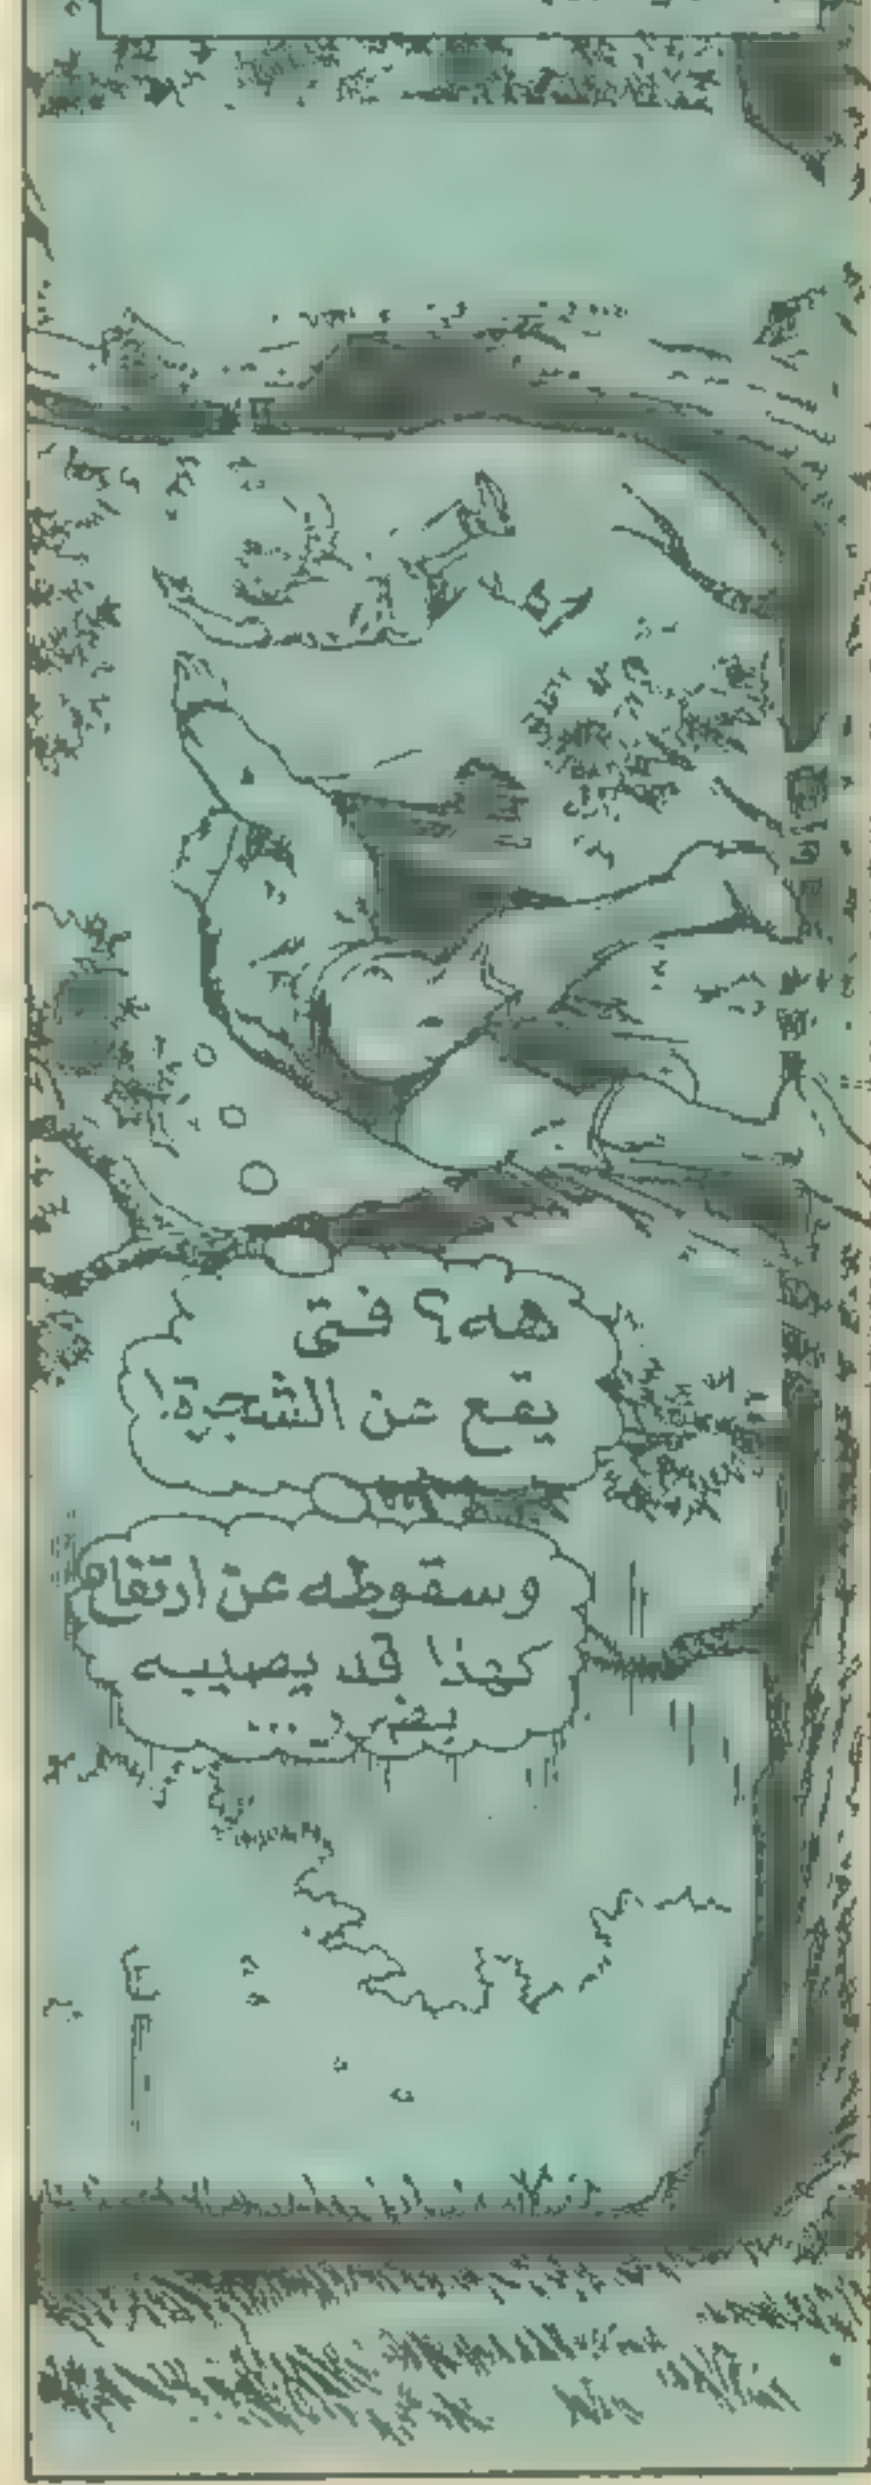 هه؟ فتى
يقع عن الشجرة!
وسقوطه عن ارتفاع
كهذا قد يصيبه
بضرر...